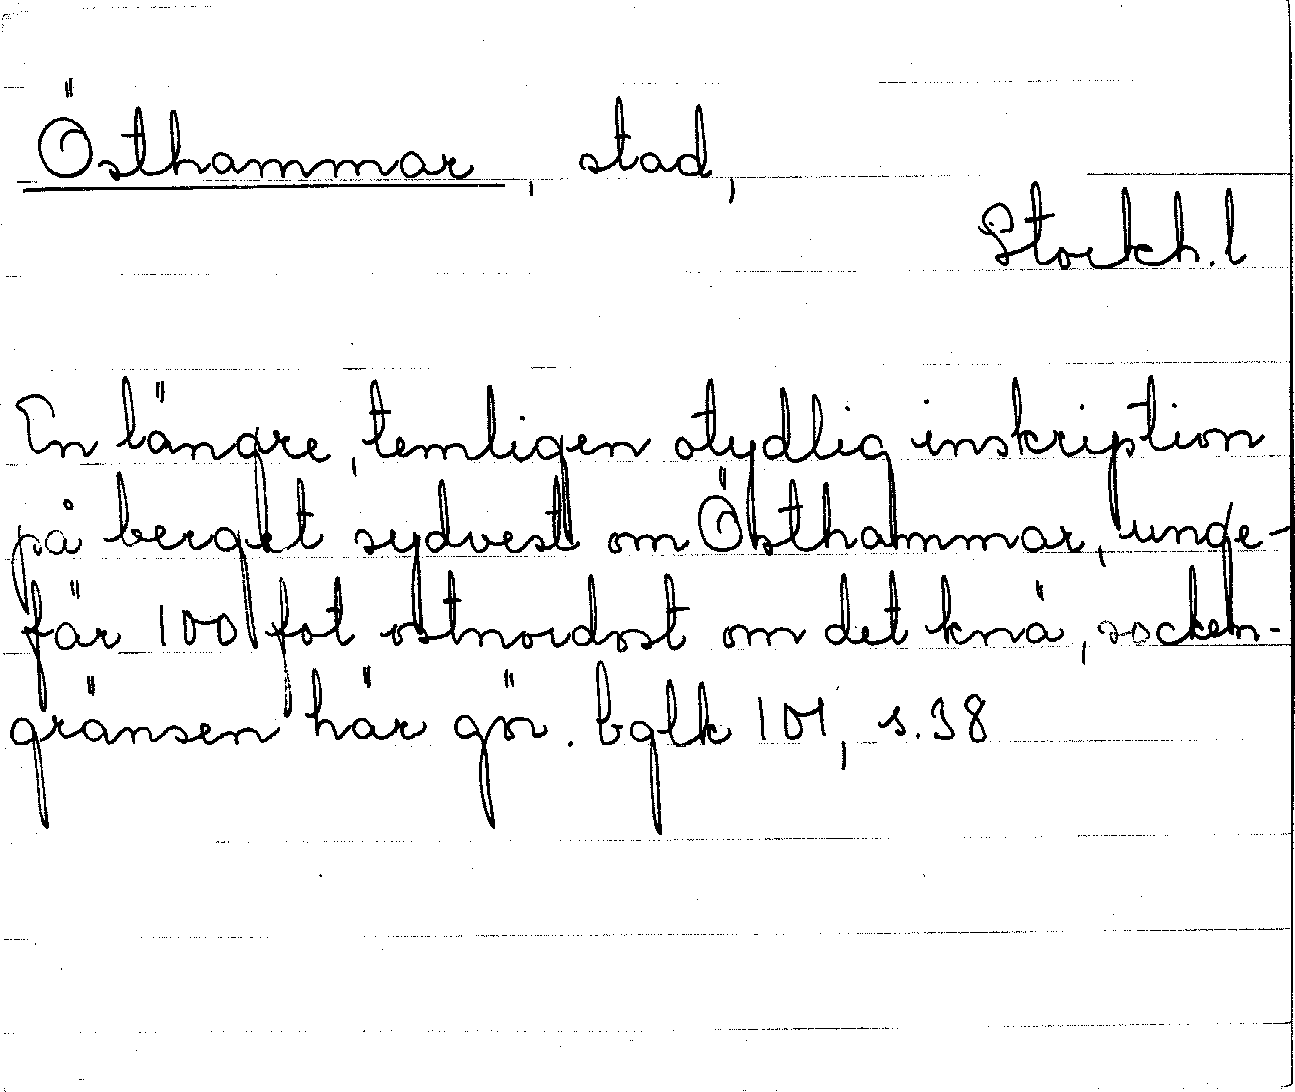 Östhammar, stad,
Stockh. l
En längre, temligen otydlig inskription
på berget sydvest om Östhammar, unge-
fär 100 fot ostnordost om det knä, socken-
gränsen här gör. bglk 101, s. 38